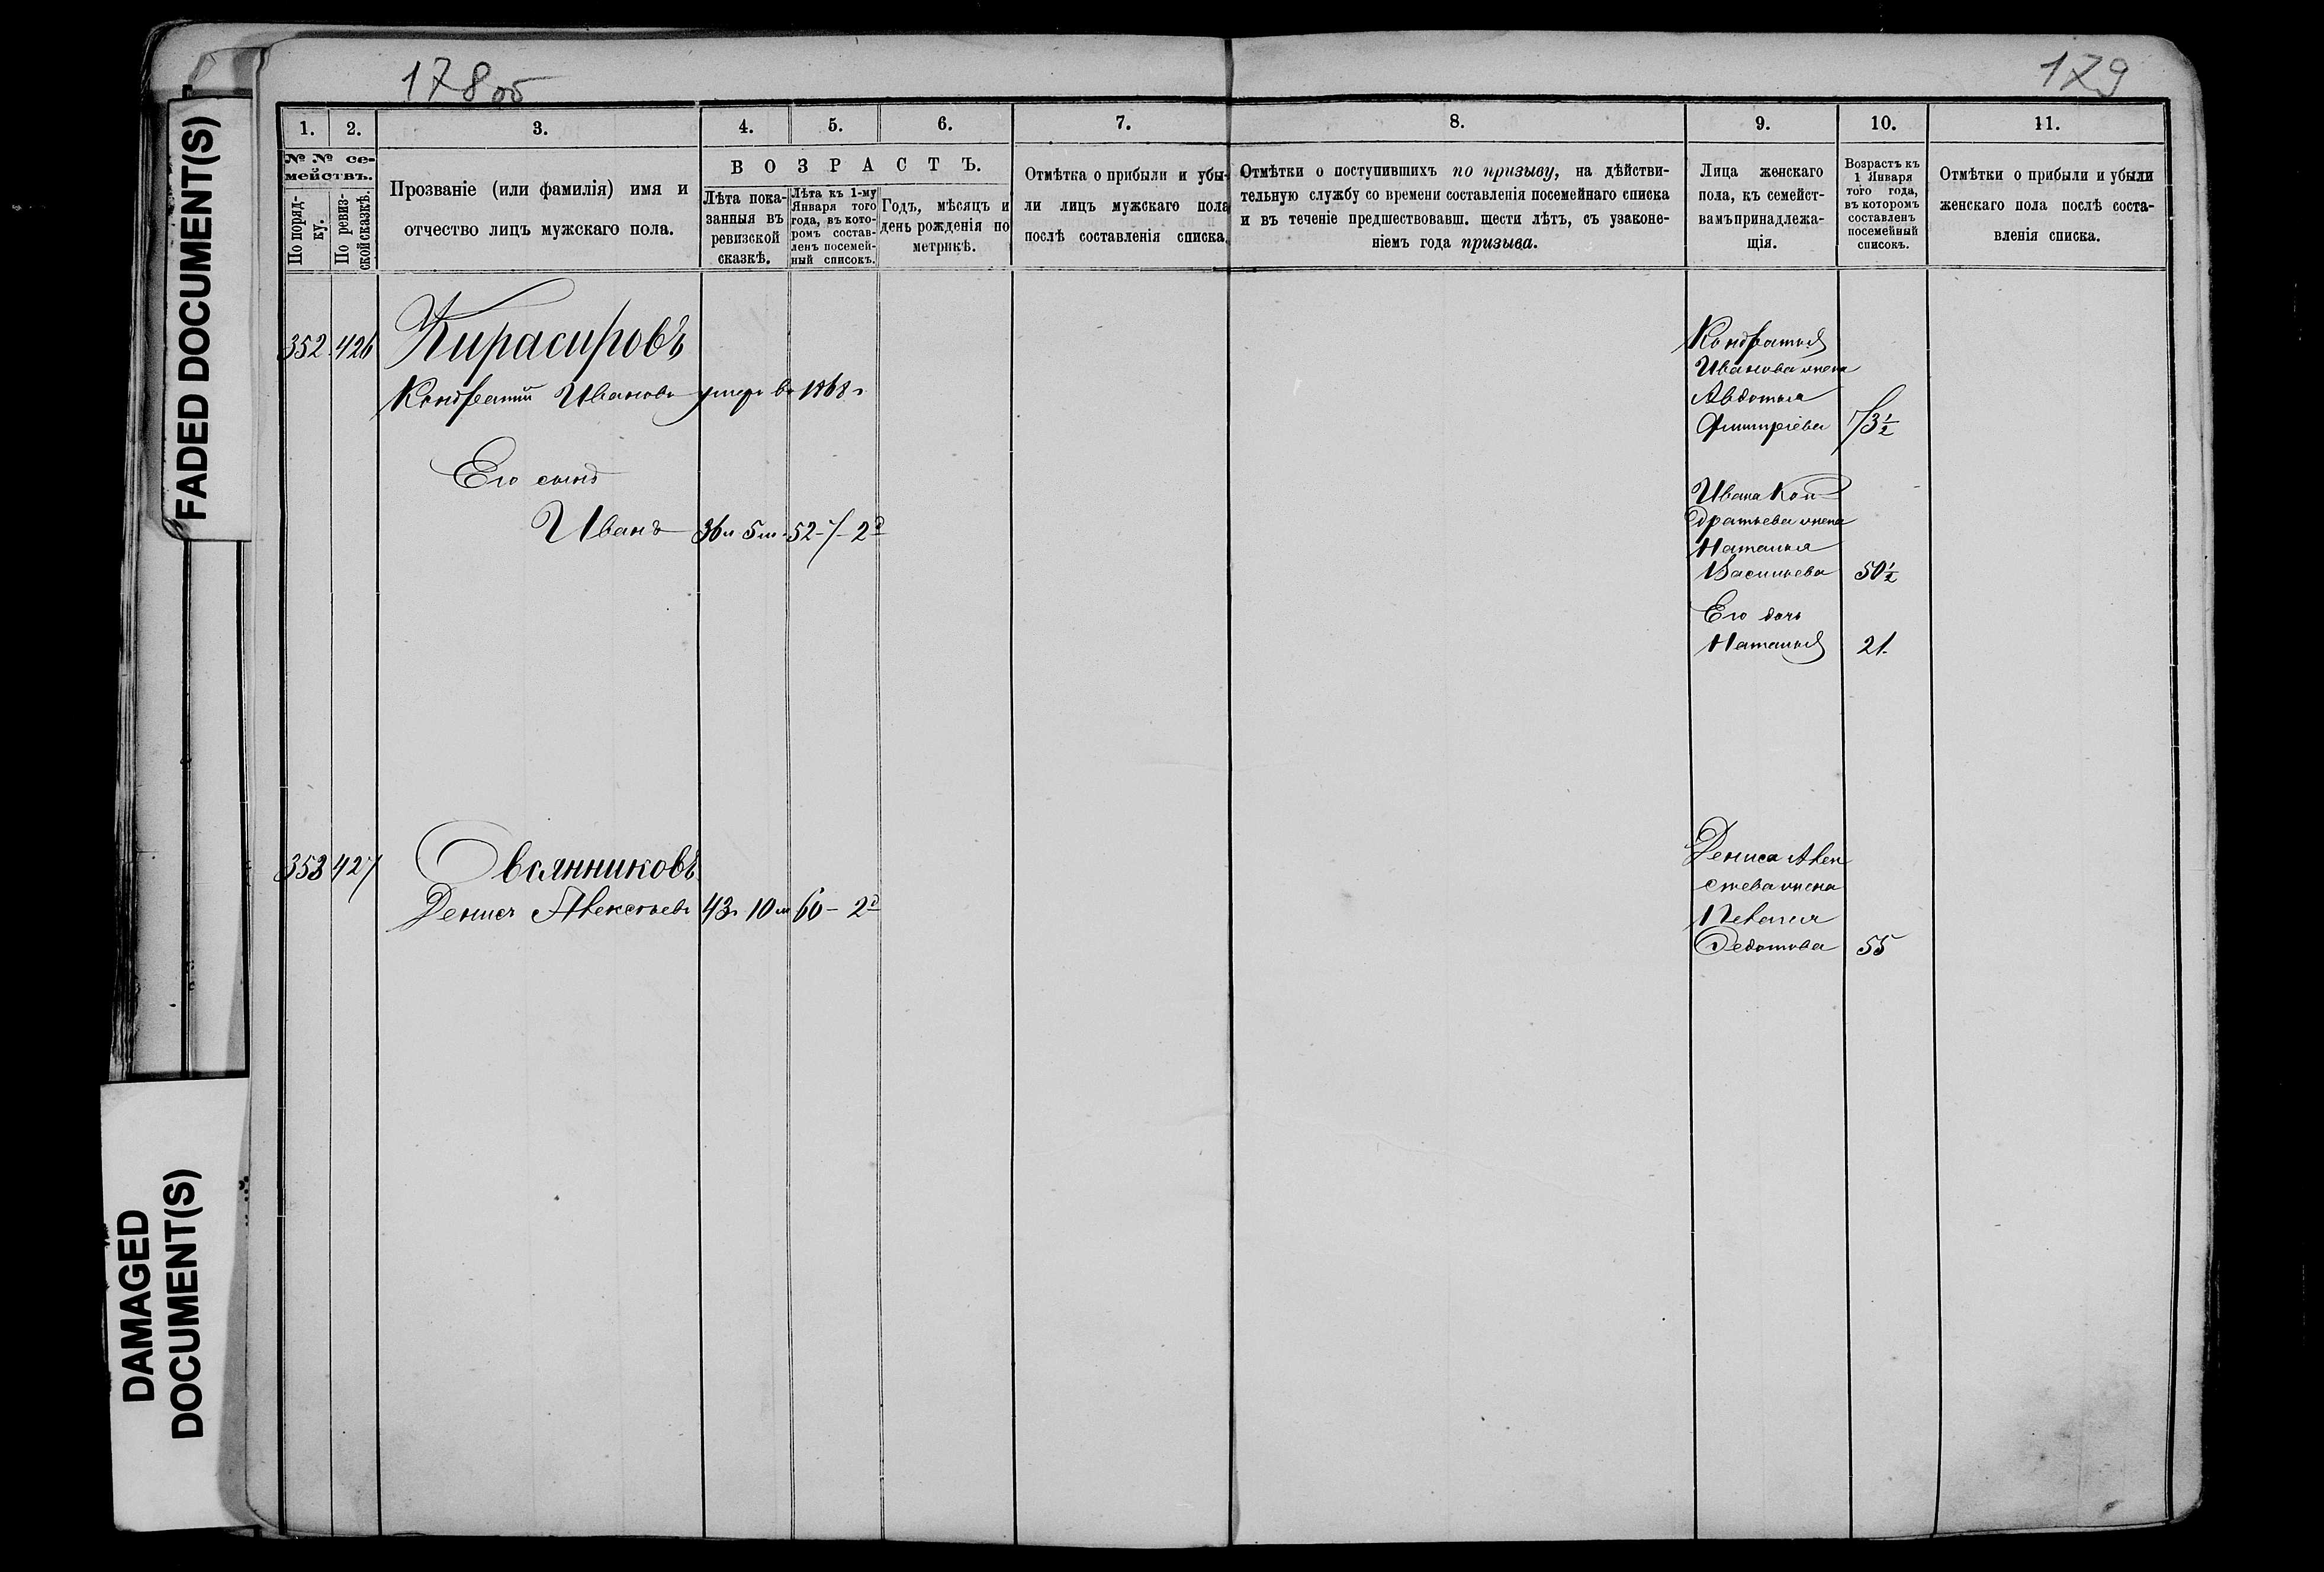 178об
179
FADED DOCUMENT(S)
DAMAGED
DOCUMENT(S)
1.
2.
3.
4.
5.
6.
7.
8.
9.
10.
11.
№ № се-
мействъ.
По поряд-
ку.
По ревиз-
ской сказкѣ.
Прозваніе (или фамилія) имя и
отчество лицъ мужскаго пола.
ВОЗРАСТЪ.
Лѣта пока-
занныя въ
ревизской
сказкѣ.
Лѣта къ 1-му
Января того
года, въ кото-
ромъ состав-
ленъ посемей-
ный списокъ.
Годъ, мѣсяцъ и
день рожденія по
метрикѣ.
Отмѣтка о прибыли и убы-
ли лицъ мужскаго пола
послѣ составленія списка.
Отмѣтки о поступившихъ по призыву, на дѣйстви-
тельную службу со времени составленія посемейнаго списка
и въ теченіе предшествовавш. шести лѣтъ, съ узаконе-
ніемъ года призыва.
Лица женскаго
пола, къ семейст-
вамъ принадлежа-
щія.
Возрастъ къ
1 Января
того года,
въ которомъ
составленъ
посемейный
списокъ.
Отмѣтки о прибыли и убыли
женскаго пола послѣ соста-
вленія списка.
352 426 Кирасировъ
Кондратій Ивановъ умеръ въ 1868 г
Его сынъ
Иванъ 36 л 5 м 52-7-2д
Кондратья
Иванова жена
Авдотья
Дмитріева 73½
Ивана Кон-
дратьева жена
Наталья
Васильева 50½
Его дочь
Наталья 21.
353 427 Овсянниковъ
Денисъ Алексѣевъ 43 г 10 м 60-2д
Дениса Алек
сѣева жена
Пелагея
Федотова 55